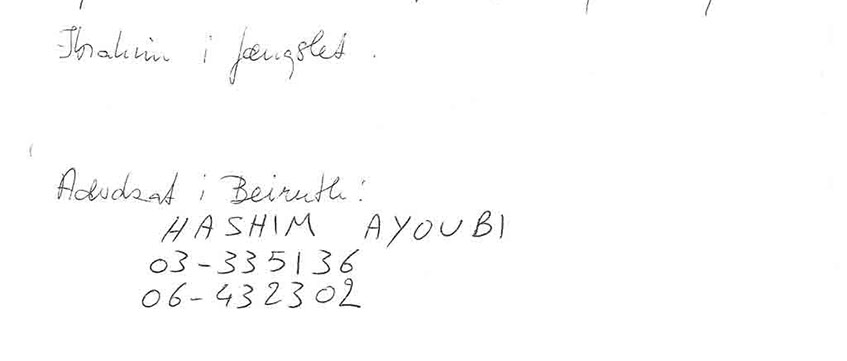 Ibrahim i fængslet.
Advokat i Beiruth:
HASHIM AYOUBI
03-335136
06-432302